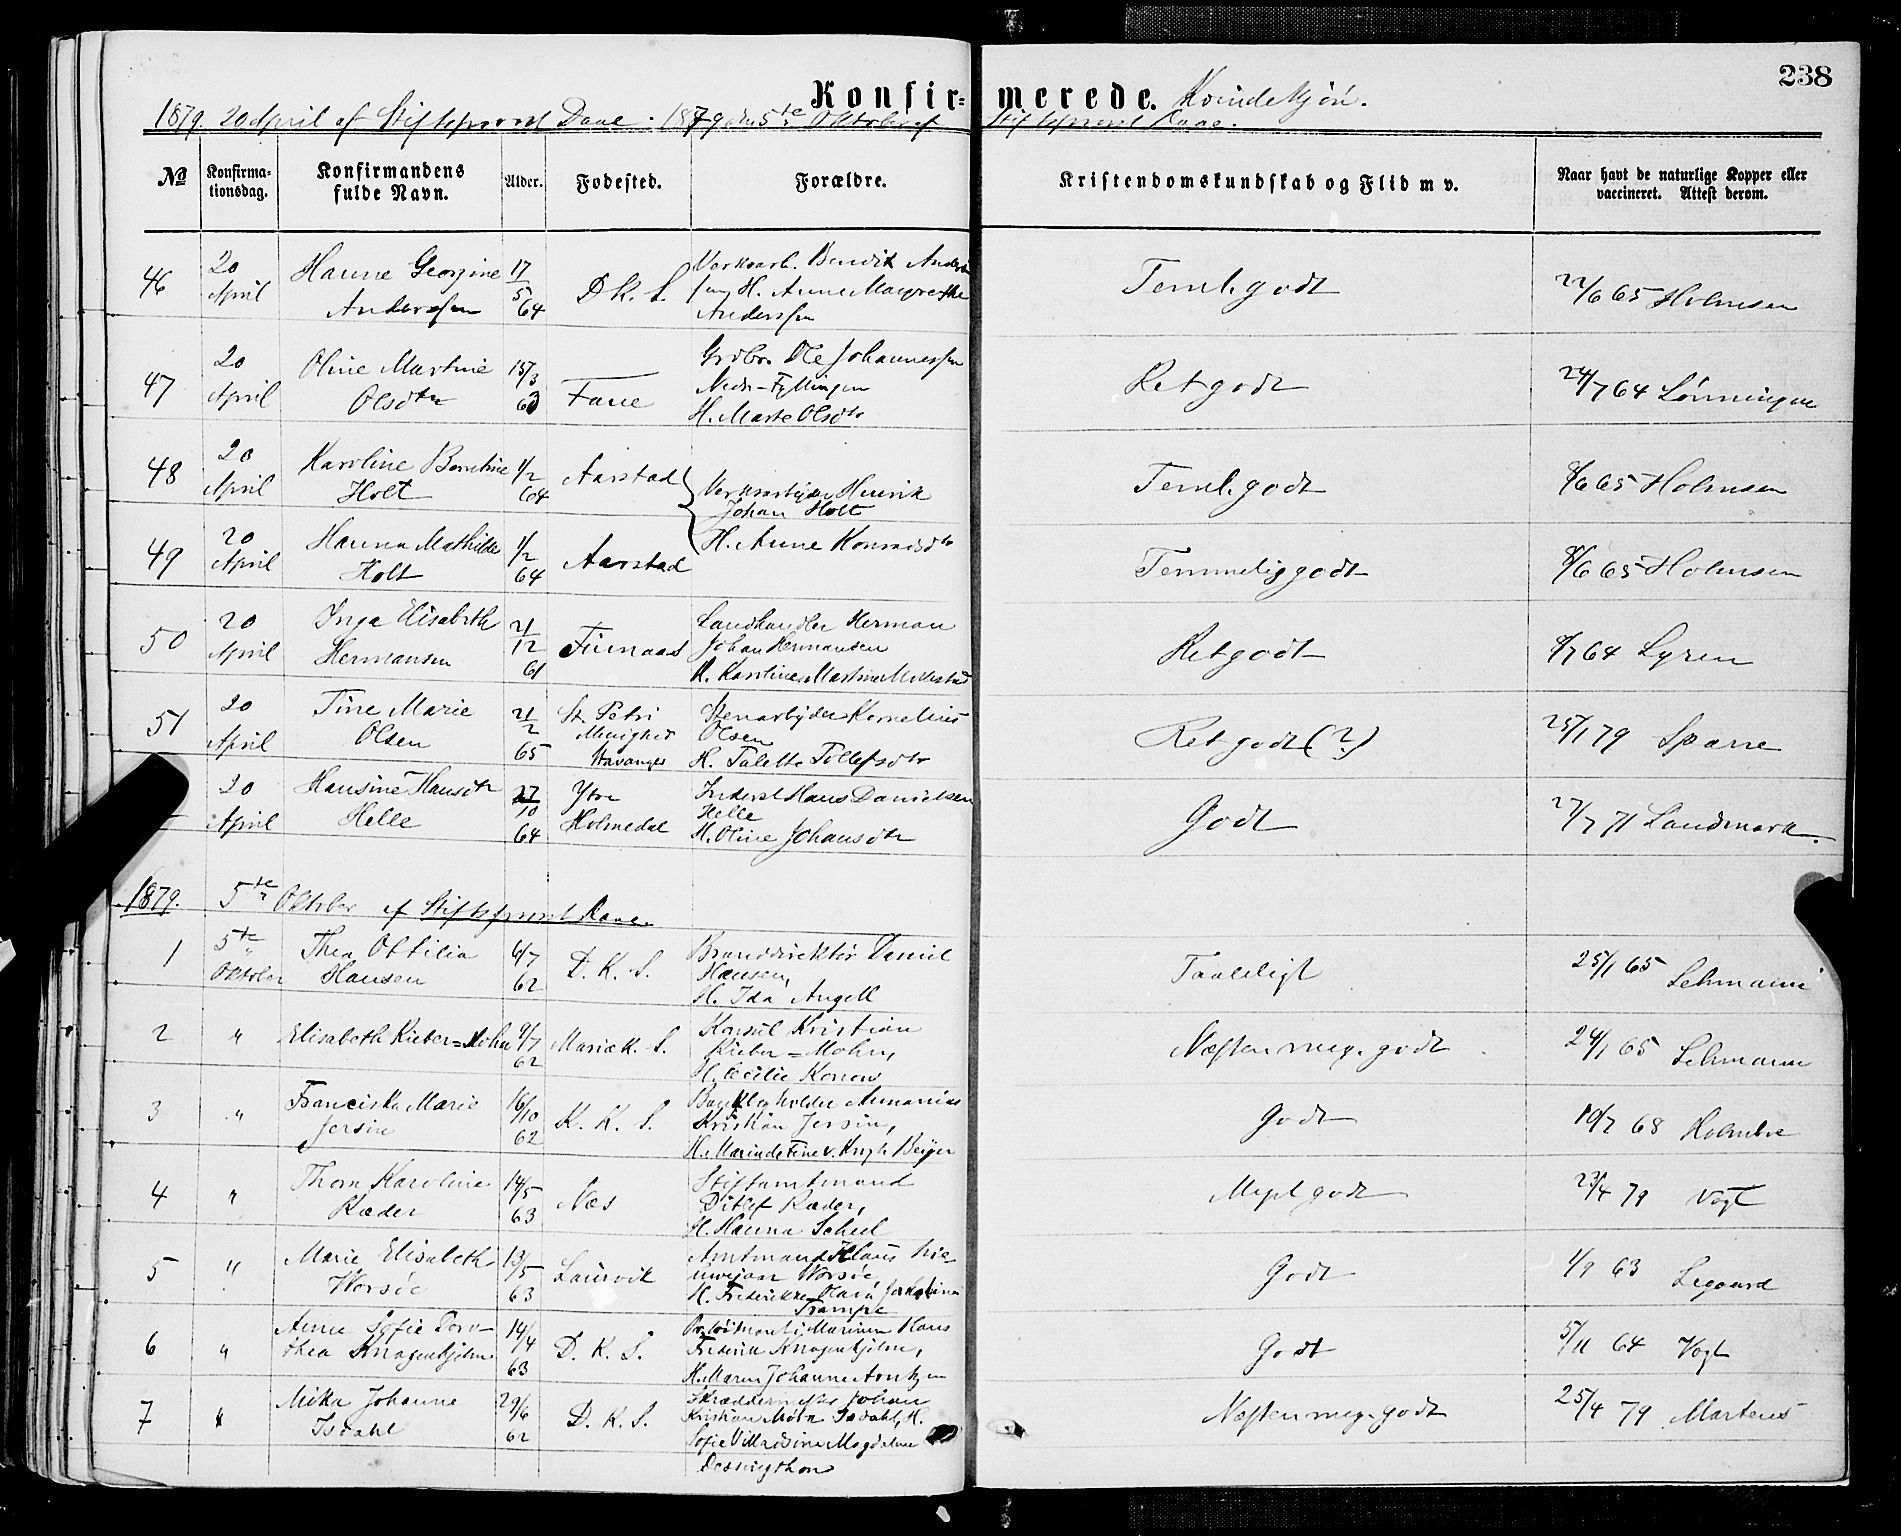 238
Konfir= merede. Kvindekjøn.
1879. 20 April af Stiftsprovst Daae. 1879 den 5te Oktober af Stiftsprovst Daae.
No Konfirma- Konfirmandens Alder. Fødested. Forældre. Kristendomskundskab og Flid m v. Naar havt de naturlige Kopper eller
tionsdag. fulde Navn. vaccineret. Attest derom.
46 20 April Hanne Georgine Anderssen 17/5 64 D. K. S. Verksarb. Bendik Anders
sen, H. Anne Margrethe
Anderssen Teml. godt 22/6 65 Holmsen
47 20 April Oline Martine Olsdtr 15/3 63 Fane Grdbr. Ole Johannessen
Nedr-Fyllingen
H. Marte Olsdtr Ret godt 24/7 64 Lønningen
48 20 April Karoline Berntine Holt 1/2 64 Aarstad Verksarbeider Henrik
Johan Holt Teml. godt 8/6 65 Holmsen
49 20 April Hanna Mathilde Holt 1/2 64 Aarstad H. Anne Konradsdtr Temmelig godt 8/6 65 Holmsen
50 20 April Inga Elisabeth Hermansen 21/12 61 Finnaas Landhandler Herman
Johan Hermansen
H. Karoline Martine Ret godt 8/7 64 Lyren
51 20 April Tine Marie Olsen 21/2 65 St. Petri Menighed Stavanger Stenarbyder Kornelius
Olsen
H. Talette Tollefsdtr Ret godt (?) 25/1 79 Sparre
20 April Hansine Hansdtr Helle 27/10 64 Ytre Holmedal Inderst Hans Danielsen
Helle
H. Oline Johansdtr Godt 27/7 71 Landmark.
1879. 5te Oktober af Stiftsprovst Daae.
1 5te Oktober Thea Ottilia Hansen 6/7 62 D. K. S. Branddirektør Daniel
Hansen,
H. Ida Angell Taaleligt 25/1 65 Lehmann
2 " Elisabeth Kieber=Mohn 9/7 62 Mariæ K. S. Konsul Kristian
Kieber=Mohn,
H. Cecilie Konow Næsten meg. godt 24/1 65 Lehmann
3 " Franciska Marie Jersin 16/10 62 K. K. S. Bankbogholder Annanias
Kristian Jersin,
H. Marinde Fine v. Krogh Beyer Godt 10/7 68 Holmboe
4 " Thora Karoline Ræder 14/5 63 Næs Stiftamtmand
Ditlef Ræder,
H. Hanna Scheel Meget godt 23/4 79 Vogt
5 " Marie Elisabeth Worsöe 13/5 63 Laurvik Amtmand Klaus
Worsöe,
H. Frederikke Maria
Trampe Godt 1/9 63 Legaard
6 " Anne Sofie Dorothea Knagenhjelm 14/4 63 D. K. S. Marinen Hans
Frederik Knagenhjelm,
H. Maren Johanne Godt 5/11 64 Vogt
7 " Mika Johanne Isdahl 29/6 62 D. K. S. Skræddermester Johan
Kristian Mohn Isdahl, H.
Sofie Villardine Magdalene
Dessingthon Næsten meg. godt 25/4 79 Martens